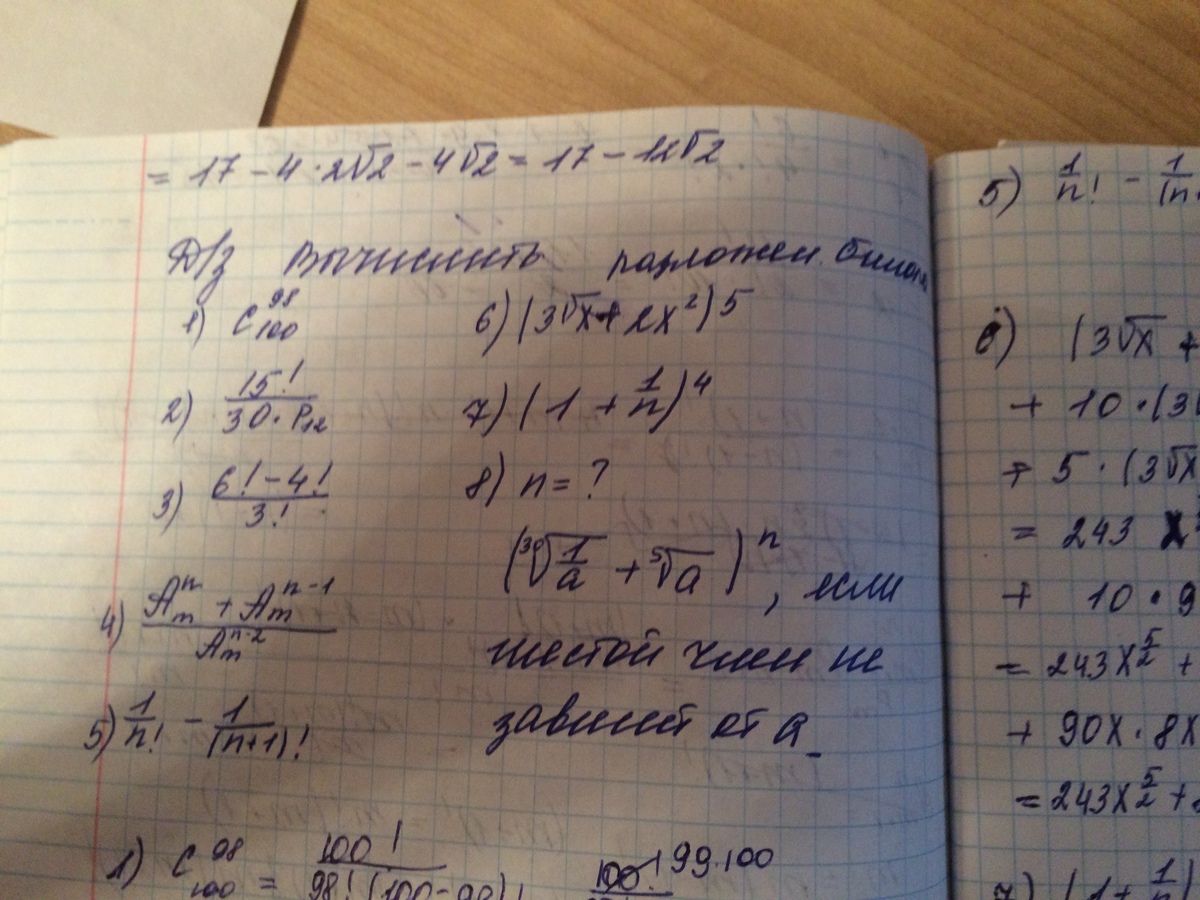 = 17 - 4 · 2√2 - 4√2 = 17 - 12√2
Д/з Вычислить
1) C₁₀₀⁹⁸
2) 15! / (30 · P₁₂)
3) (6! - 4!) / 3!
4) (Aₘⁿ + Aₘⁿ⁻¹) / Aₘⁿ⁻²
5) 1/n! - 1/(n+1)!
разложен. бином
6) (3√x + 2x²)⁵
7) (1 + 1/n)⁴
8) n = ?
(³⁰√(1/a) + ⁵√a)ⁿ, если
шестой член не
зависит от a
1) C₁₀₀⁹⁸ = 100! / 98!(100-98)! 100! 99·100
5) 1/n! - 1/(n
6) (3√x +
+ 10 · (3
+ 5 · (3√x
= 243 x
+ 10 · 9
= 243x^(5/2) +
+ 90x · 8x
= 243x^(5/2) +
7) (1 + 1/n)